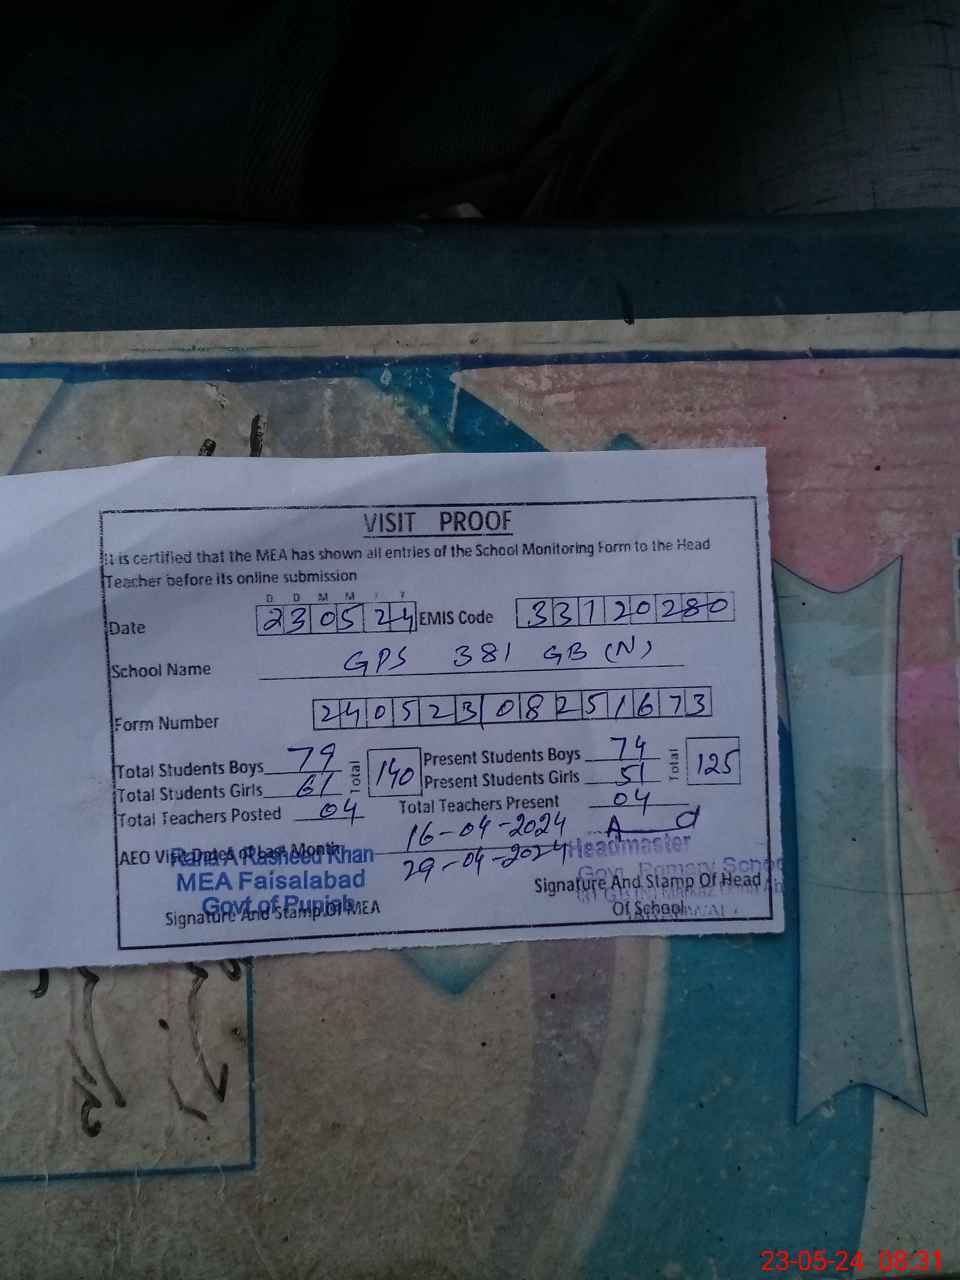 VISIT PROOF
It is certified that the MEA has shown all entries of the School Monitoring Form to the Head
Teacher before its online submission
D D M M Y Y
Date 230524 EMIS Code 33120280
School Name GPS 381 GB (N)
Form Number 24052308251673
Total Students Boys 79 Total 140 Present Students Boys 74 Total 125
Total Students Girls 61 Present Students Girls 51
Total Teachers Posted 04 Total Teachers Present 04
AEO Visit Dates of Last Month 16-04-2024
29-04-2024
Rana A Rasheed Khan
MEA Faisalabad
Govt of Punjab
Signature And Stamp Of MEA
Headmaster
Signature And Stamp Of Head
Of School
23-05-24 08:31